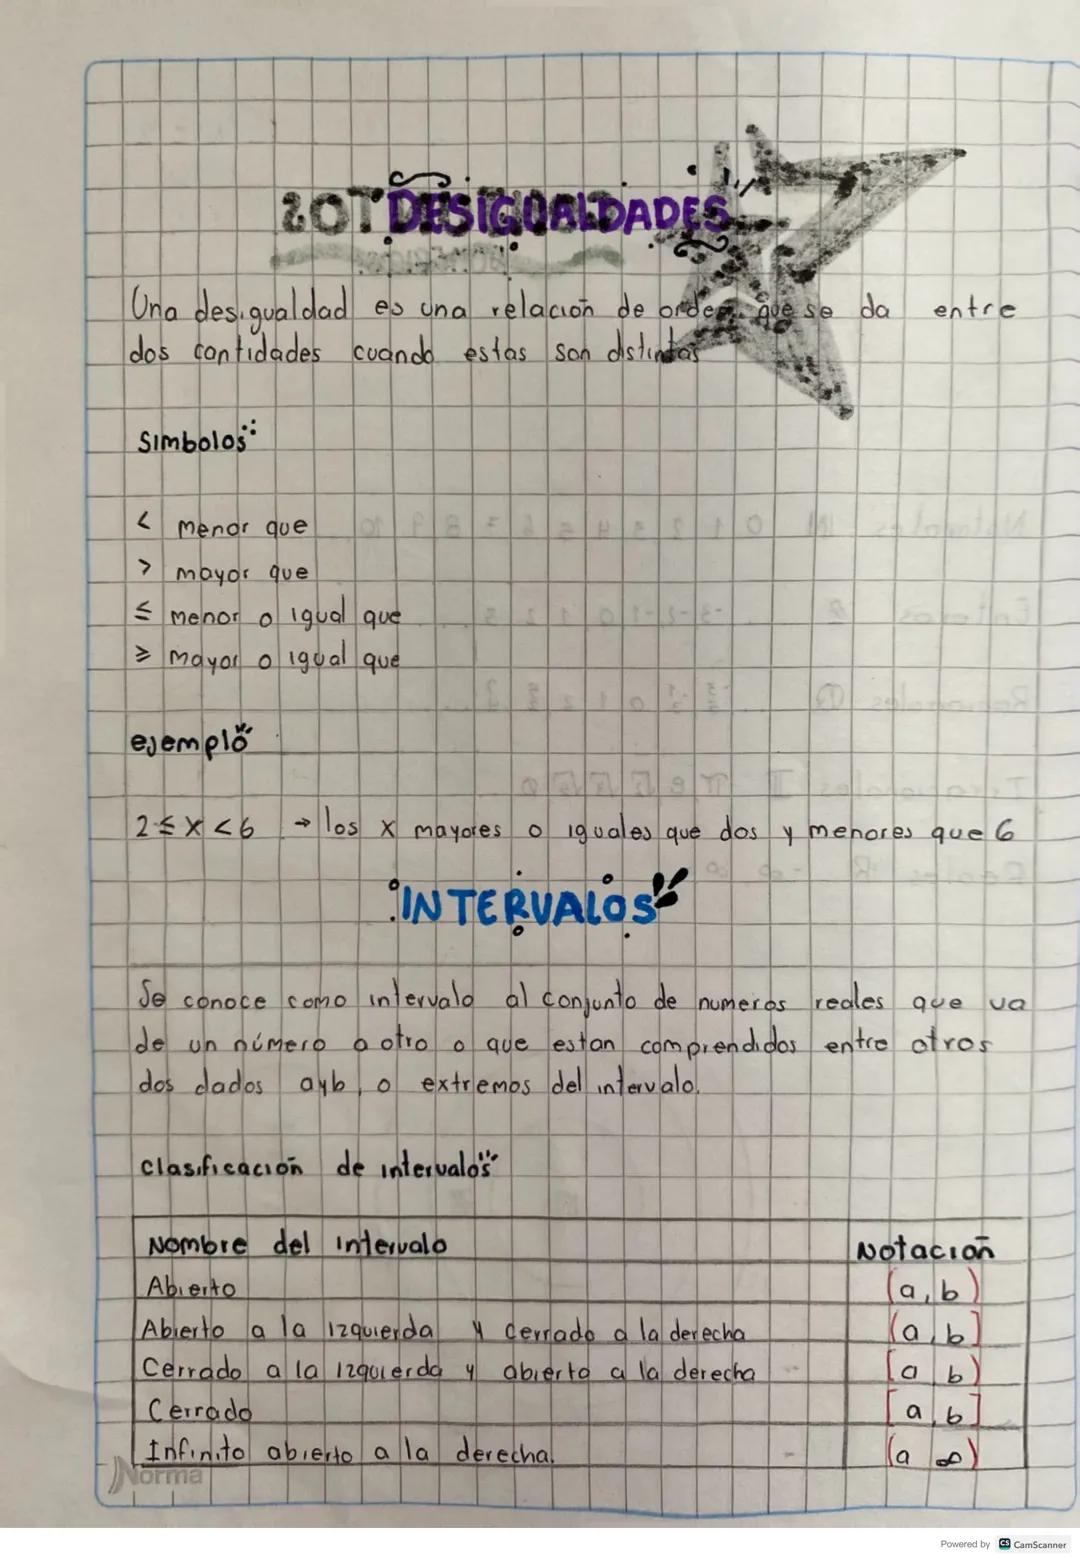 DESIGUALDADES
Una desigualdad es una relación de orden que se da entre
dos cantidades cuando estas son distintas
Simbolos:
< menor que
> mayor que
≤ menor o igual que
≥ mayor o igual que
ejemplo
2 ≤ x < 6 → los x mayores o iguales que dos y menores que 6
INTERVALOS
Se conoce como intervalo al conjunto de numeros reales que va
de un número a otro o que estan comprendidos entre otros
dos dados ayb, o extremos del intervalo.
clasificación de intervalos
Nombre del intervalo Notación
Abierto (a, b)
Abierto a la izquierda y cerrado a la derecha (a, b]
Cerrado a la izquierda y abierto a la derecha [a b)
Cerrado [a, b]
Infinito abierto a la derecha. (a ∞)
Norma
Powered by CS CamScanner